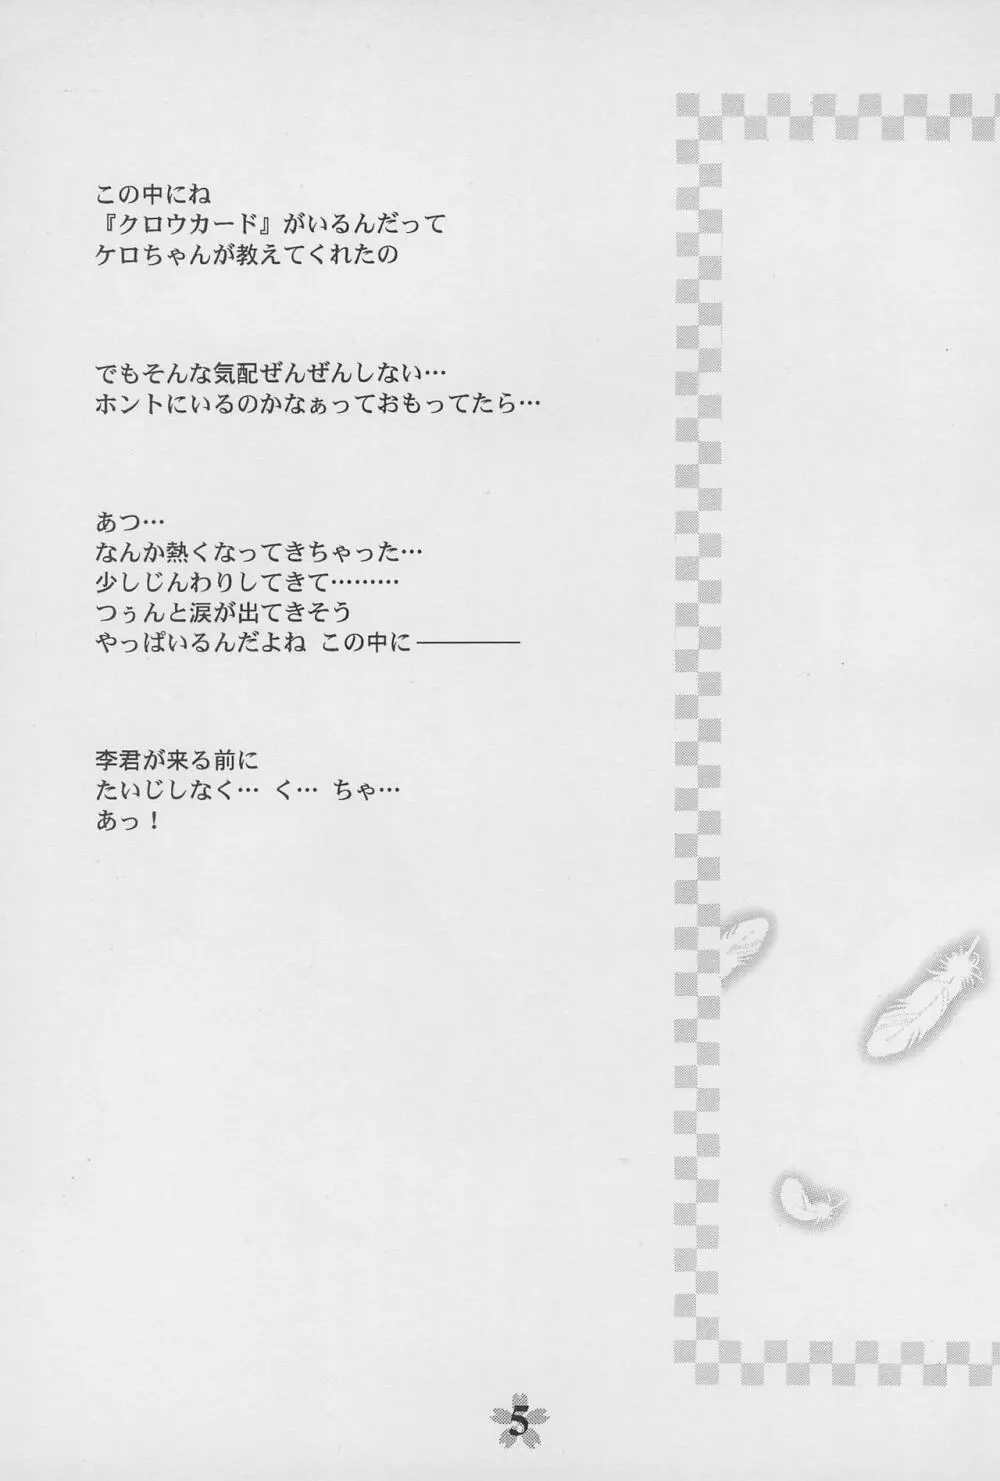 この中にね
『クロウカード』がいるんだって
ケロちゃんが教えてくれたの
でもそんな気配ぜんぜんしない…
ホントにいるのかなぁっておもってたら…
あつ…
なんか熱くなってきちゃった…
少しじんわりしてきて………
つぅんと涙が出てきそう
やっぱいるんだよね この中に————
李君が来る前に
たいじしなく… く… ちゃ…
あっ！
5